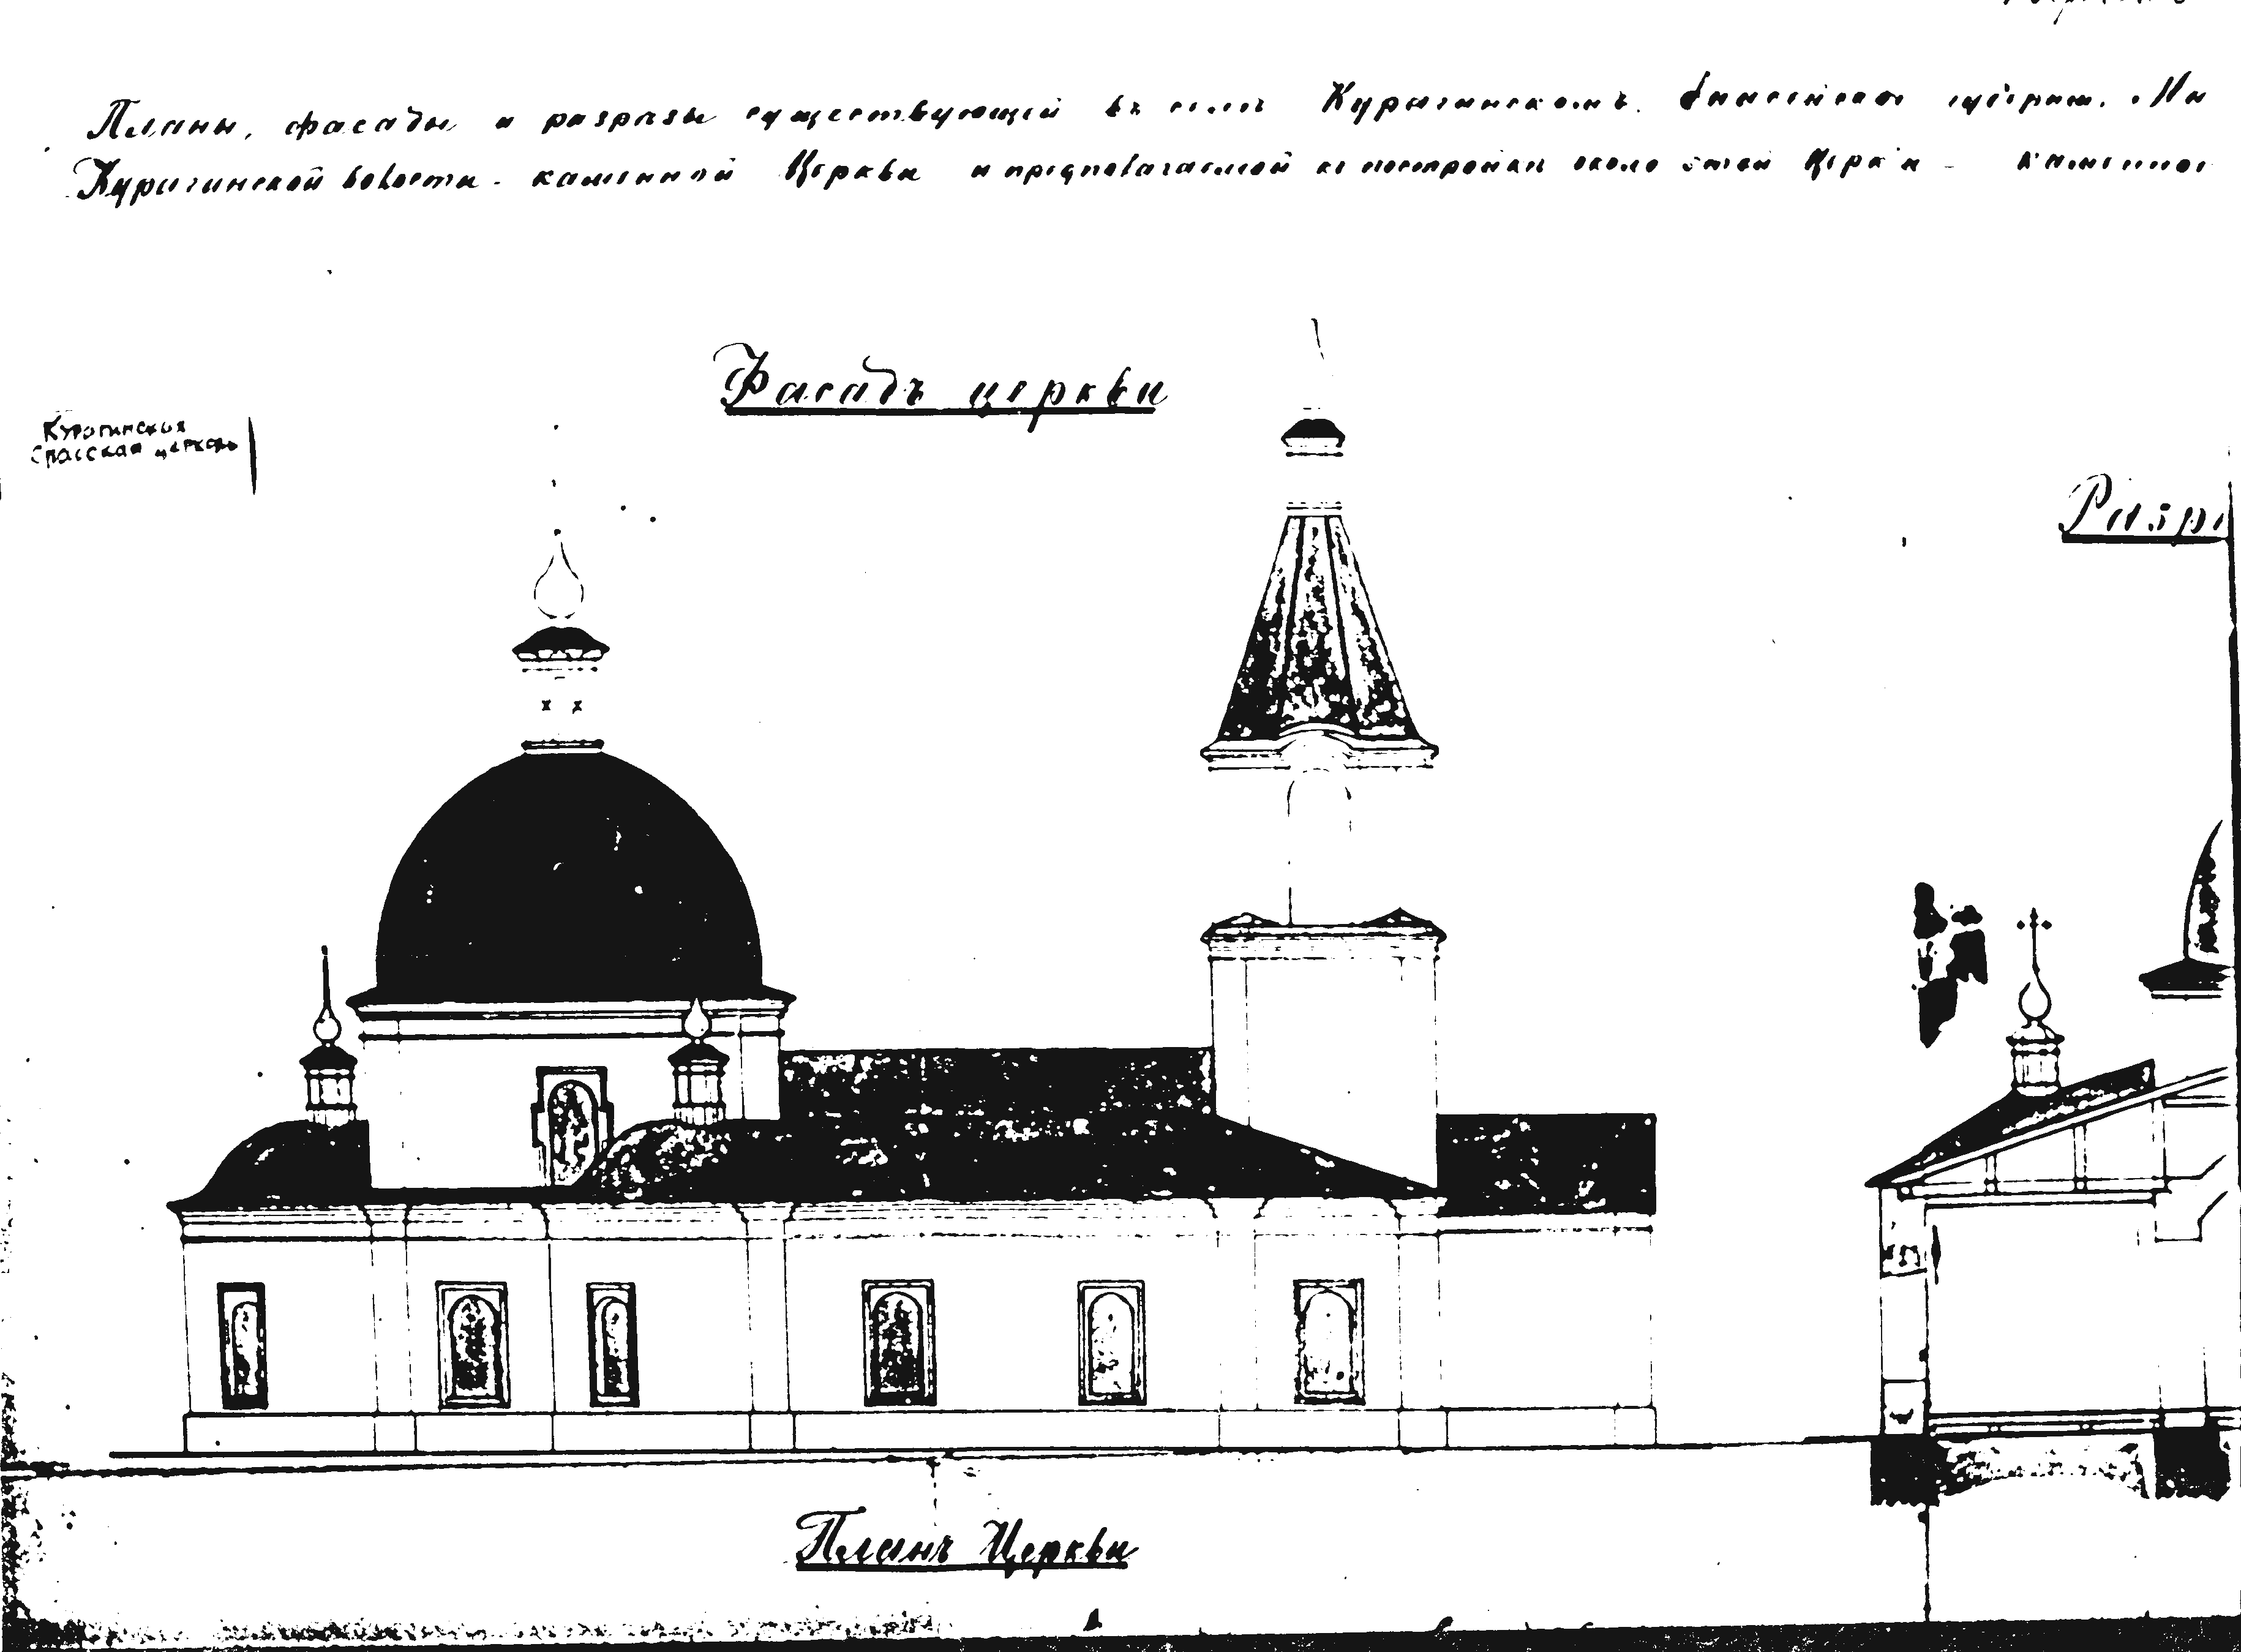 Планы, фасады и разрезы существующей въ селѣ Курагинскомъ, Енисейской губерніи, Ми
Курагинской волости - каменной Церкви и предполагаемой къ постройки около этой Церкви - каменной
Фасадъ церкви
Курагинская
Спасская церковь
Разрѣ
Планъ Церкви